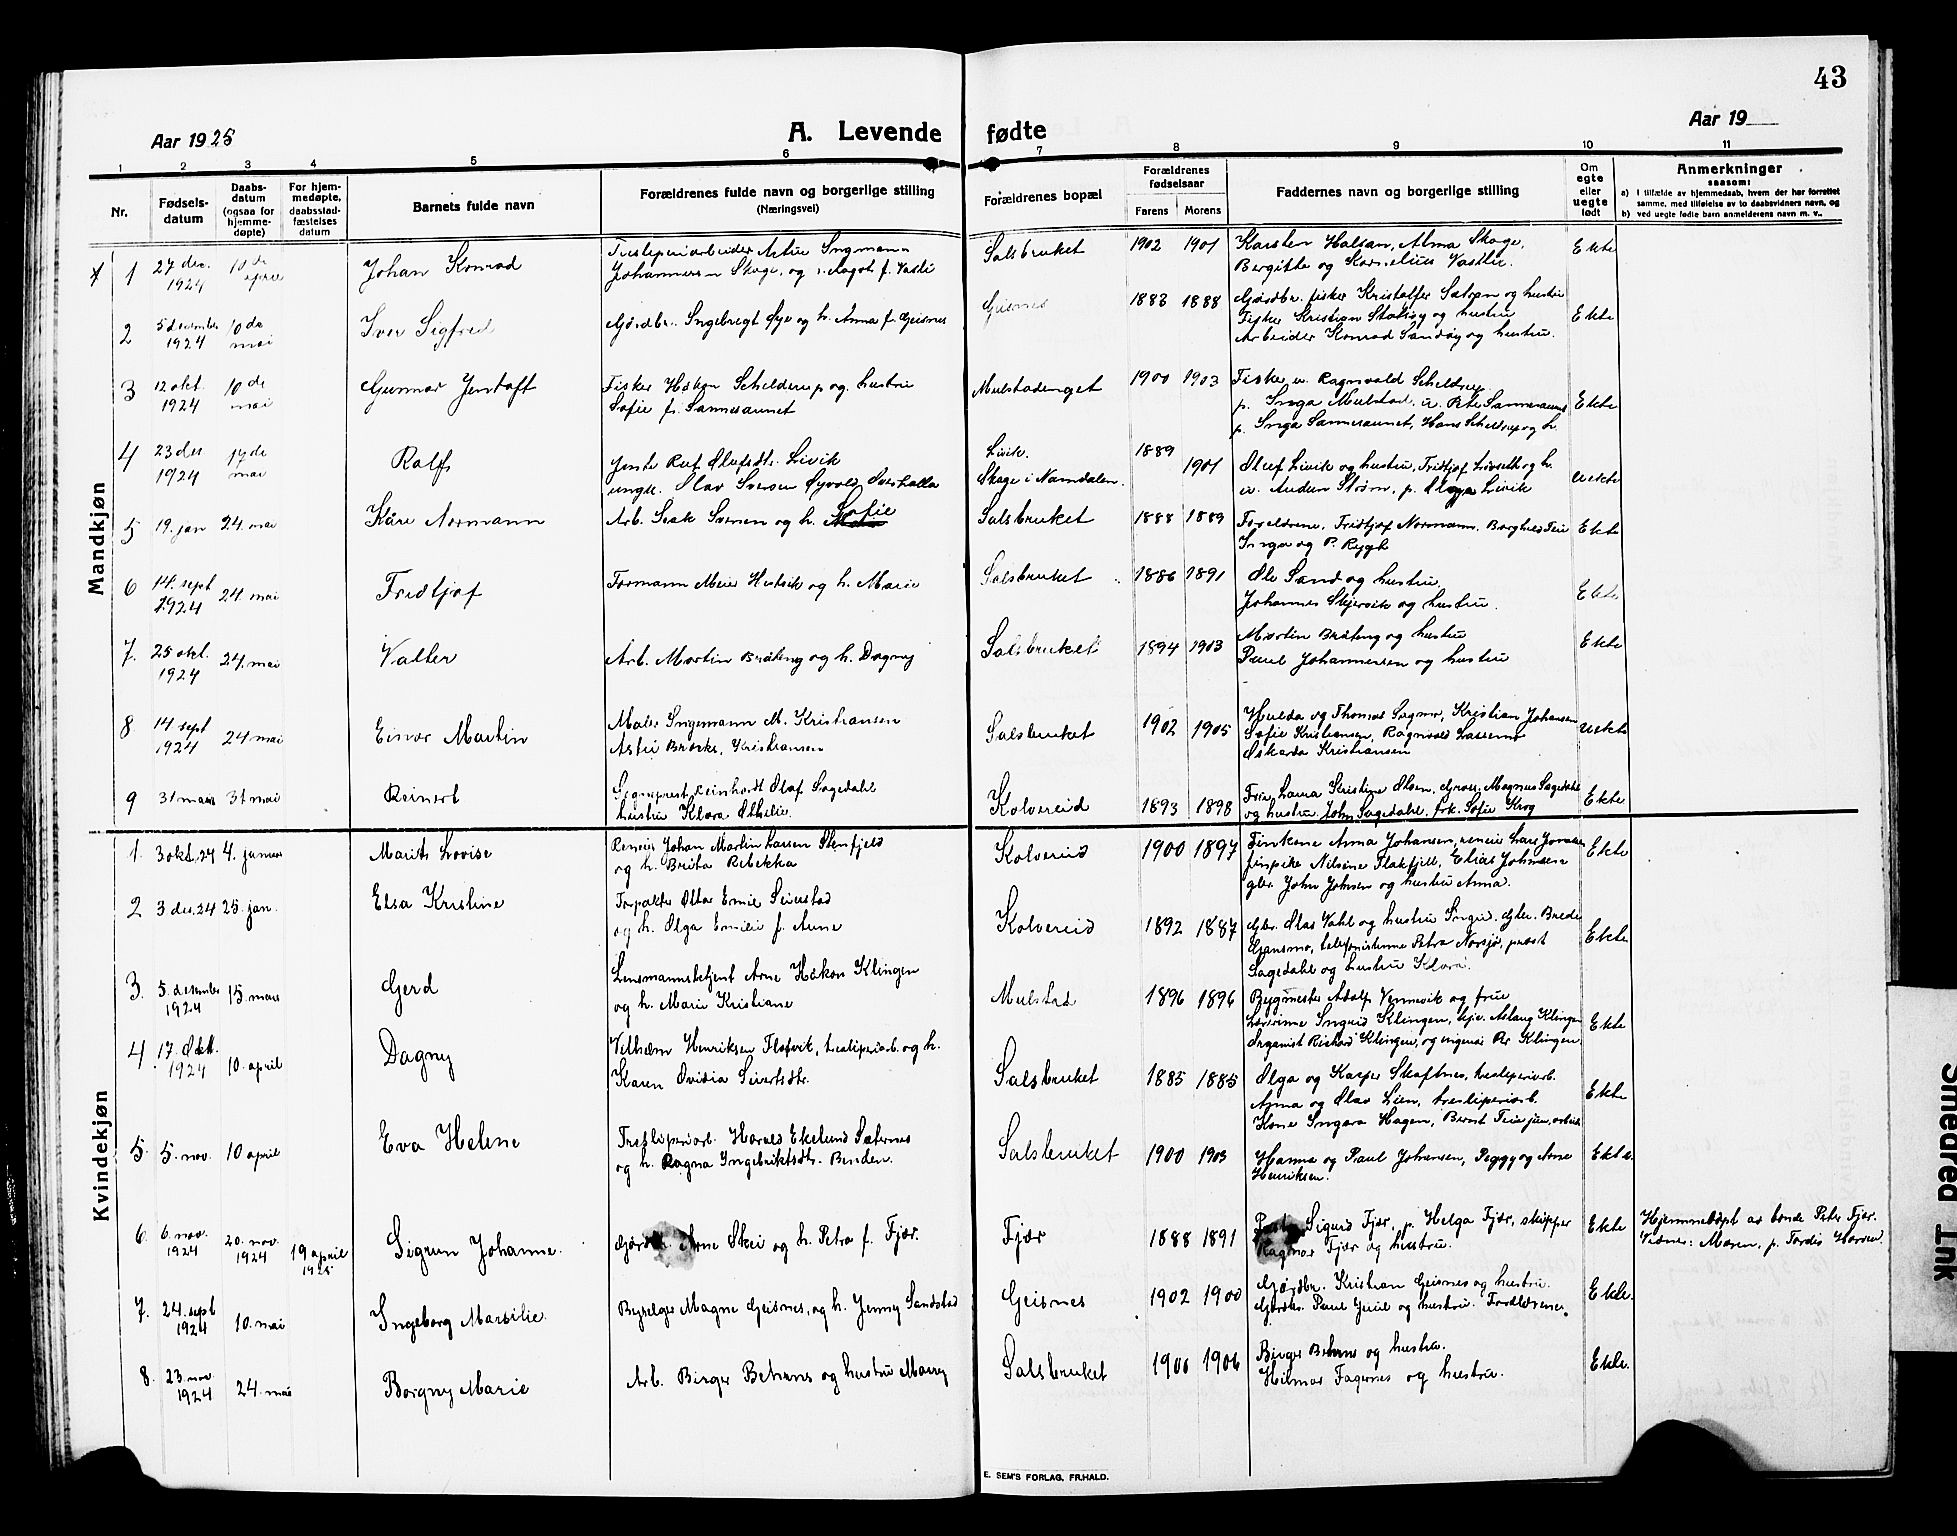 43
Aar 1925
A. Levende fødte
Aar 19
1 2 3 4 5 6 7 8 9 10 11
Nr.
Fødsels-
datum
Daabs-
datum
(ogsaa for
hjemme-
døpte)
For hjem-
medøpte,
daabsstad-
fæstelses
datum
Barnets fulde navn
Forældrenes fulde navn og borgerlige stilling
(Næringsvei)
Forældrenes bopæl
Forældrenes
fødselsaar
Farens Morens
Faddernes navn og borgerlige stilling
Om
egte
eller
uegte
født
Anmerkninger
saasom:
a) I tilfælde av hjemmedaab, hvem der har forrettet
samme, med tilføielse av to daabsvidners navn, og
b) ved uegte fødte barn anmelderens navn m. v..
Mandkjøn
1 27 des. 1924 10 de april Johan Konrad
Johannessen Skage, og
Salsbruket 1902 1901
Karsten Halsan, Alma Skage,
Bergitte og Kornelius Vastli.
Ekte
2 5 desember 1924 10 de mai Iver Sigfred
Gårdbr. Ingebregt Øye og h. Anna f. Geisnes
Geisnes 1883 1888
Gårdbr. fisker Kristoffer Sætran og hustru
Fisker Kristian og hustru
Arbeider Konrad Sandøy og hustru.
Ekte
3 12 okt. 1924 10 de mai Gunnar Jentoft
Fisker Håkon Schelderup og hustru
Sofie f. Sannesaunet
Mulstadenget 1900 1903
Fisker u. Ragnvald Scheldrup
p. Inga Mulstad, u. Sannesaunet
p. Inga Sannesaunet, Hans Scheldrup og h.
Ekte
4 23 des 1924 17 de mai Ralf
Olufsdtr. Livik
ungk. Olav Iversen Overhalla
Livik.
Skage i Namdalen.
1889
1901
Oluf Livik og hustru, Fridtjof og h.
u. Strøm, p. Olga Livik
Uekte
5 19. jan 24. mai Kåre Normann
Arb. Isak Svensen og h. Sofie
Salsbruket 1888 1889
Foreldrene, Fridtjof Normann, Borghild
Inga og P. Rygh
Ekte
6 14. sept 1924 24. mai Fridtjof
Formann Meier og h. Marie
Salsbruket 1886 1891
Ole Sand og hustru.
Johannes Skjervik og hustru.
Ekte
7. 25 okt. 1924 24. mai Valter
Arb. Martin Bråteng og h. Dagny
Salsbruket 1894 1903
Martin Bråteng og hustru
Paul Johannesen og hustru
Ekte
8 14 sept 1924 24 mai Einar Martin
Maler Ingemann M. Kristiansen
Kristiansen
Salsbruket 1902 1905
Hulda og Thomas Kristian Johansen
Sofie Kristiansen, Ragnvald
Oskarda Kristiansen
Uekte
9 31 mars 31 mai Reinert
Sogneprest Reinhardt Olaf Sagedahl
hustru Klara Othelie.
Kolvereid 1893 1898
Laura Kristine Olsen, Magnus Sagedahl
og hustru John Sagedahl, frk. Sofie Krog
Ekte
Kvindekjøn
1. 3 okt. 24 4. januar Marith Lovise
Reneier Johan Martin Larsen Stenfjeld
og h. Brita Rebekka
Kolvereid 1900 1897
Finkone Anna Johansen, reneier Lars
finpike Nilsine Elias Johnsen
gbr. John Johnsen og hustru Anna.
Ekte
2 3 des. 24 25. jan. Elsa Kristine
Emil Seierstad
og h. Olga Emilie f. Aune
Kolvereid 1892 1887
Gbr. Olas Vahl og hustru Gbr. Brede
Gansmo, telefonistinne Petra Norsjø, prest
Sagedahl og hustru Klara.
Ekte
3. 5. desember 1924 15 mars Gerd
Lensmannsbetjent Arne Håkon Klingen
og h. Marie Kristiane
Mulstad 1896 1896
Bygmester Adolf Vennevik og frue
Lærerinne Ingrid Klingen, Aslaug Klingen
Organist Richard Klingen, og ingeniør Per Klingen.
Ekte
4. 17. Okt. 1924 10. april Dagny
Vilhelm Henriksen Flotvik, tresliperiarb. og h.
Karen Ovidia Sivertsdtr.
Salsbruket 1885 1885
Olga og Kasper Skaftnes, tresliperiarb.
Anna og Olav Lien, tresliperiarb.
Kone Ingara Hagen, Bernt jun, arbeid
Ekte
5. 5. nov. 10 april Eva Helene
Tresliperiarb. Harald Ekelund Sæternes
og h. Ragna Ingebriktsdtr. Binden.
Salsbruket 1900 1903
Hanna og Paul Johansen, Peggy og Arne
Henriksen.
Ekte.
6. 6. nov. 1924 20. nov. 1924 19 april 1925 Sigrun Johanne.
Arne Skei og h. Petra f. Fjær.
Fjær 1888 1891
Sigurd Fjær, p. Helga Fjær, skipper
Ragnar Fjær og hustru.
Ekte
Hjemmedøpt av bonde Peter Fjær.
Vidner: Maren, p. Tordis
7. 24. sept 1924 10. mai Ingeborg Marsilie.
Magne Geisnes, og h. Jenny Sandstad
Geisnes 1902 1900
Gårdbr. Kristian Geisnes og hustru.
Gårdbr. Paul Juul og hustru. Foreldrene.
Ekte.
8. 23. nov 1924 24. mai Borgny Marie
Arb. Birger Behrns og hustru Marry
Salsbruket 1900 1906
Birger Behrns og hustru.
Hilmar Fagernes og hustru.
Ekte.
E. SEM'S FORLAG, FR.HALD.
Smedred Ink